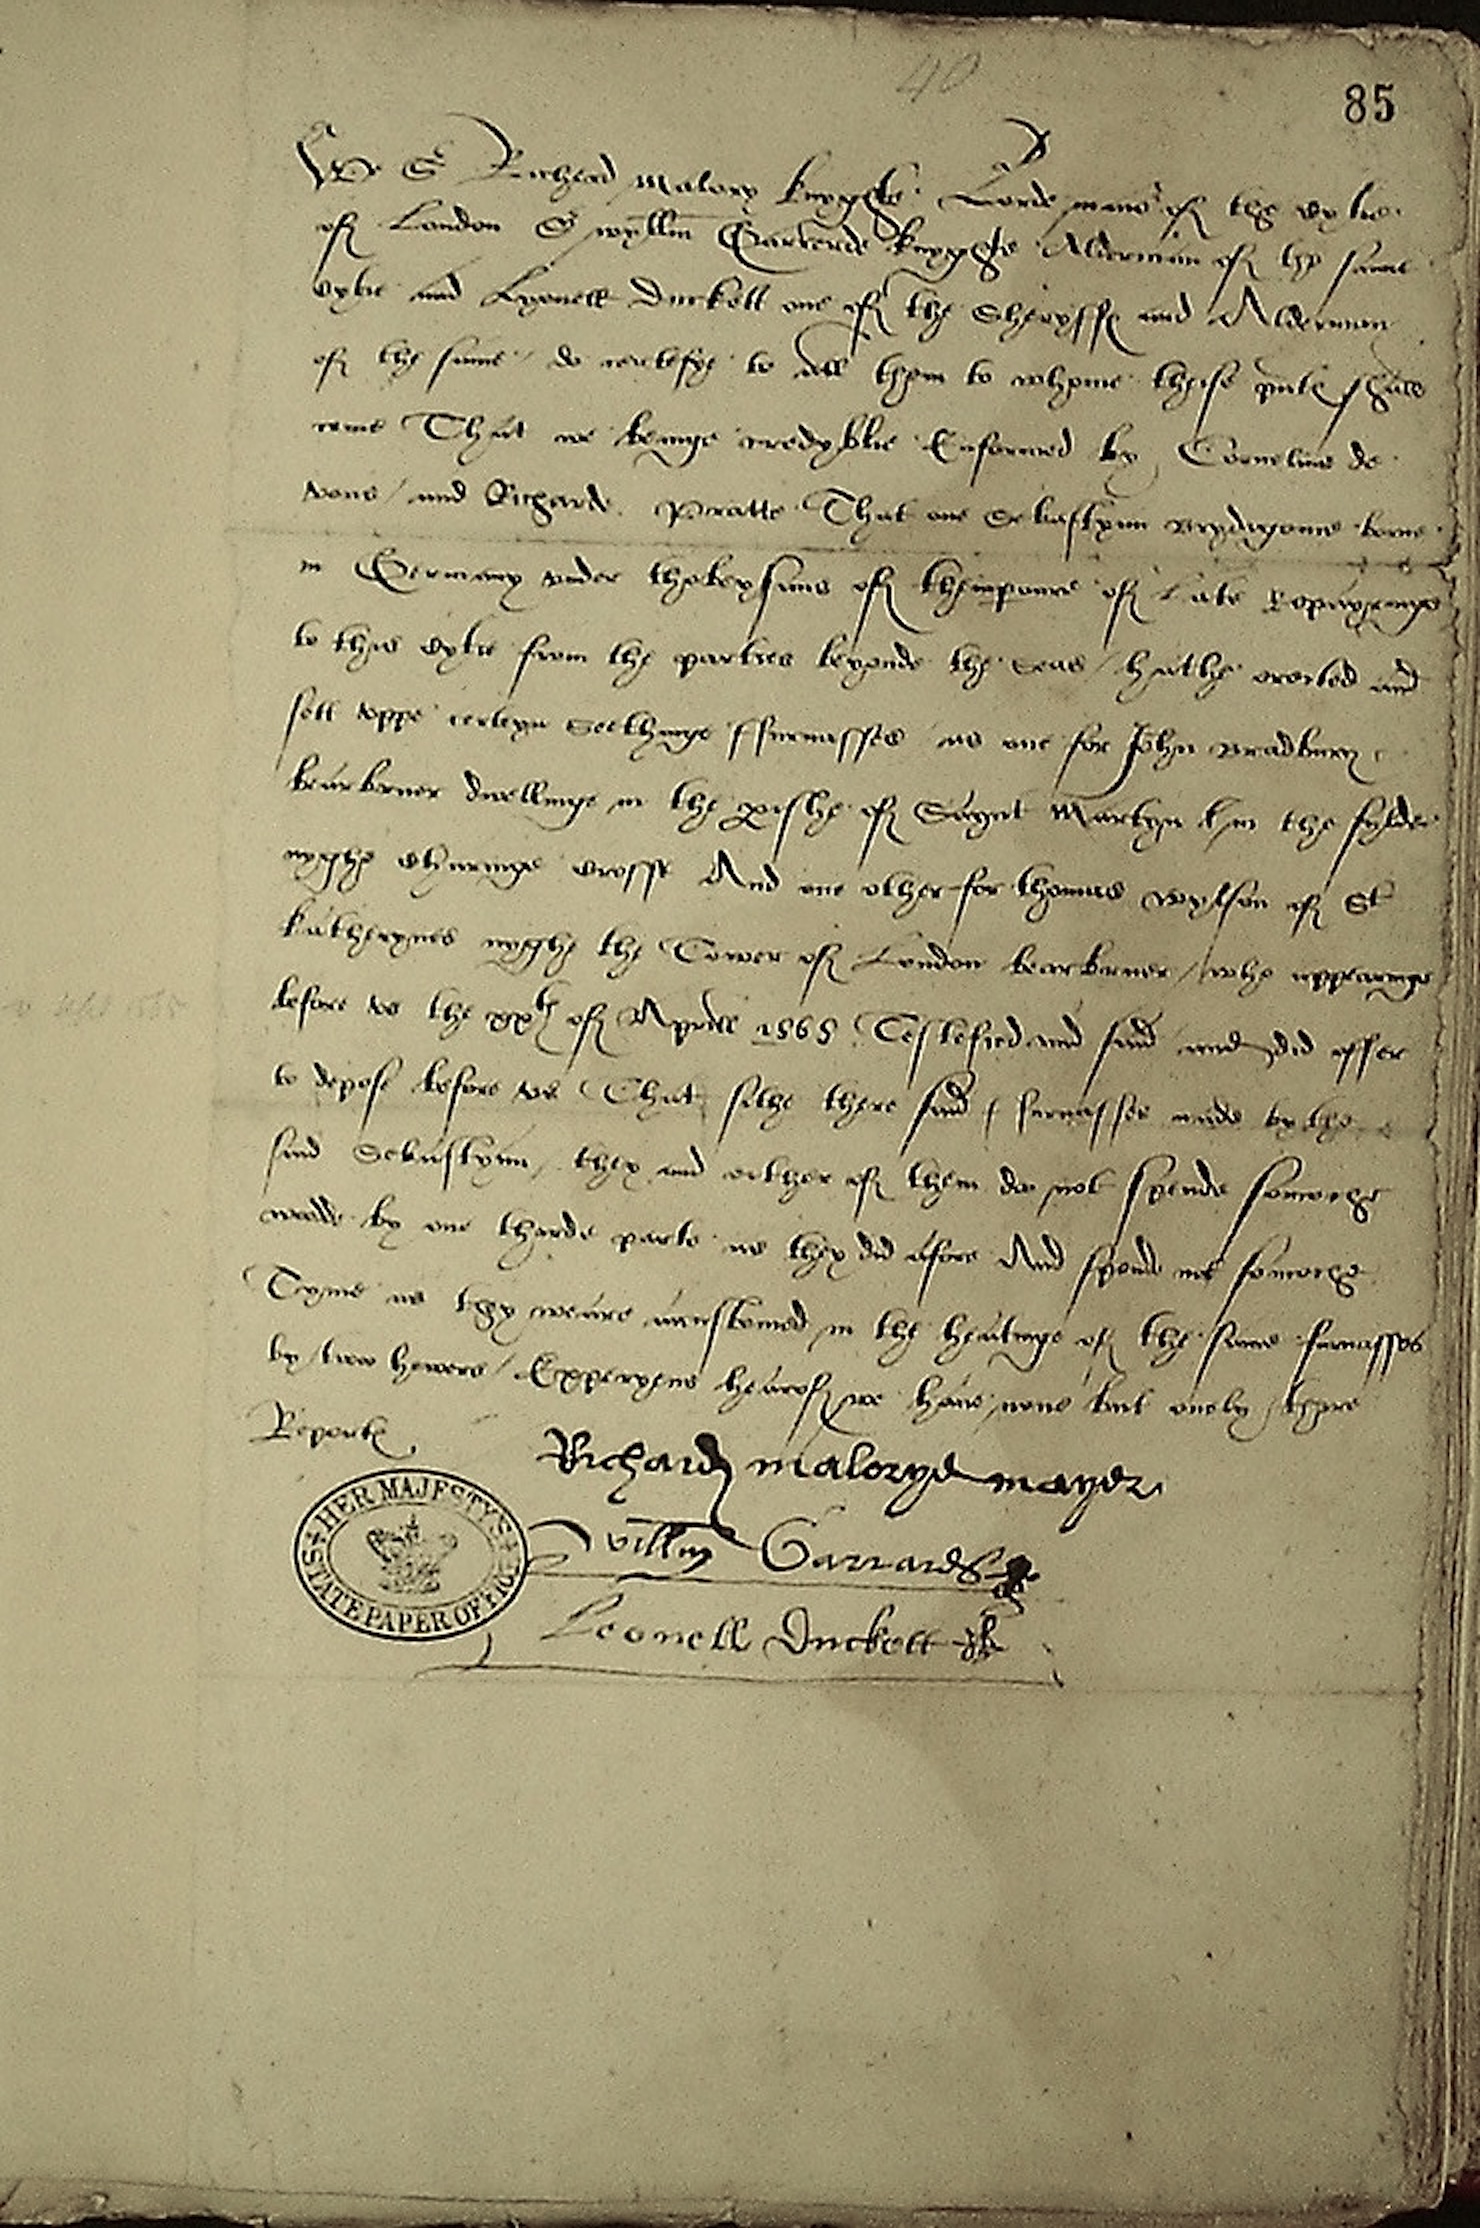 40
85
We Sr Richard Malory knyghte Lorde maior of the Cytie
of London Sr Wyllm Garrerde knyghte Alderman of the same
Cytie and Lyonell Duckett one of the Sheryffe and Alderman
of the same / do certefye to all them to whome theise pnte shall
come That we beinge credyblie Enformed by Cornelius de
vous / and Richarde Pratte That one Sebastyan Brydygonne borne
in Germany vnder the of themperoure of Late Repayringe
to this Cytie from the parties beyonde the Seas / hathe erected and
sett vppe certeyn Seethinge ffurnasses as one for John Bradbury
bearbruer dwellinge in the pishe of Saynt Martyn in the fylde
nyghe Charinge Crosse And one other for thomas Wylson of St
katherynes nyghe the Tower of London bearbruer / who appearinge
before vs the xxth of Aprill 1565 Testefied and said and did offer
to depose before vs That sithe there said furnasses made by the
said Sebastyan / they and either of them do not spende so moche
wodde by one thirde parte as they did afore And spende not so moche
Tyme as they weare accustomed in the heatinge of the same furnasses
by two howers / Experyens hearof we have none but onely there
Reporte
Richard malorye mayer
Willm Garrard
Leonell Duckett
HER MAJESTY'S
STATE PAPER OFFICE